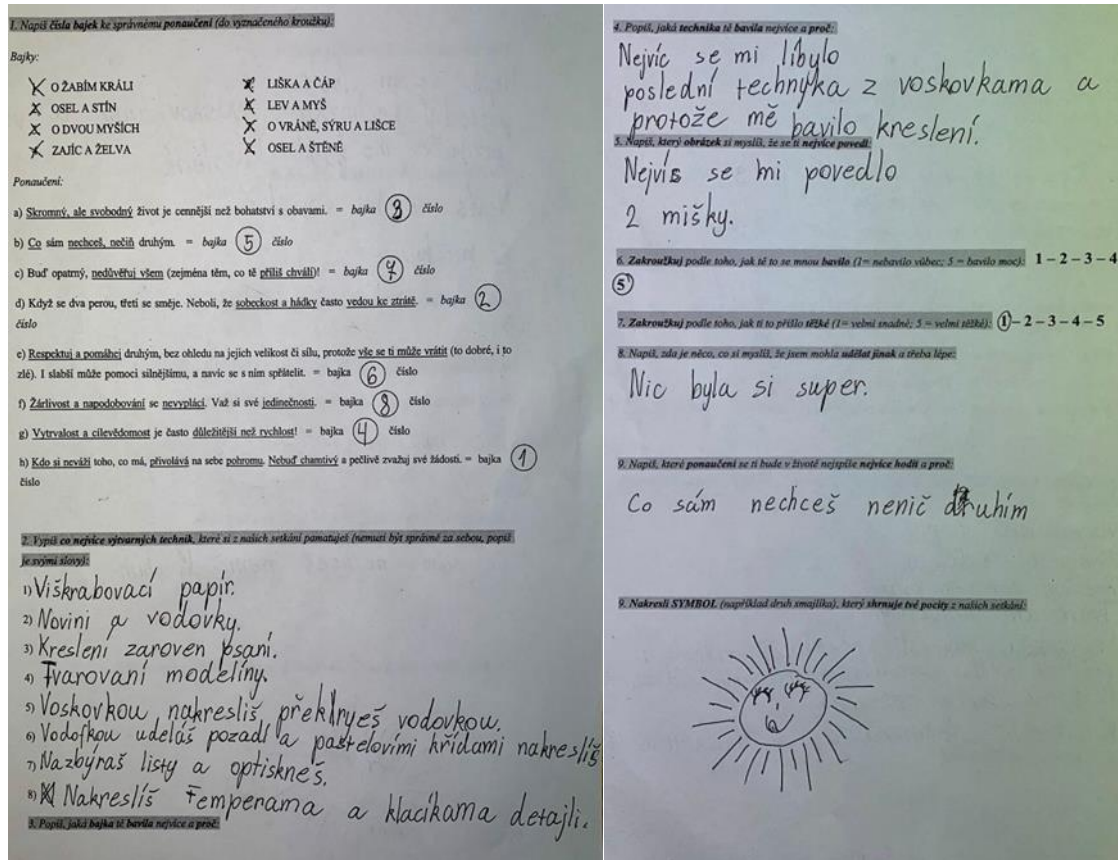 1. Napiš čísla bajek ke správnému ponaučení (do vyznačeného kroužku):
Bajky:
O ŽABÍM KRÁLI
OSEL A STÍN
O DVOU MYŠÍCH
ZAJÍC A ŽELVA
LIŠKA A ČÁP
LEV A MYŠ
O VRÁNĚ, SÝRU A LIŠCE
OSEL A ŠTĚNĚ
Ponaučení:
a) Skromný, ale svobodný život je cennější než bohatství s obavami. = bajka 3 číslo
b) Co sám nechceš, nečiň druhým. = bajka 5 číslo
c) Buď opatrný, nedůvěřuj všem (zejména těm, co tě příliš chválí)! = bajka 7 číslo
d) Když se dva perou, třetí se směje. Neboli, že sobeckost a hádky často vedou ke ztrátě. = bajka 2
číslo
e) Respektuj a pomáhej druhým, bez ohledu na jejich velikost či sílu, protože vše se ti může vrátit (to dobré, i to
zlé). I slabší může pomoci silnějšímu, a navíc se s ním spřátelit. = bajka 6 číslo
f) Žárlivost a napodobování se nevyplácí. Važ si své jedinečnosti. = bajka 8 číslo
g) Vytrvalost a cílevědomost je často důležitější než rychlost! = bajka 4 číslo
h) Kdo si neváží toho, co má, přivolává na sebe pohromu. Nebuď chamtivý a pečlivě zvažuj své žádosti. = bajka 1
číslo
2. Vypiš co nejvíce výtvarných technik, které si z našich setkání pamatuješ (nemusí být správně za sebou, popiš
je svými slovy):
1) Viškrabovací papír.
2) Novini a vodovky.
3) Kreslení zaroven psaní.
4) Tvarovaní modelíny.
5) Voskovkou nakresliš překlryeš vodovkou.
6) Vodofkou udeláš pozadí a pastelovími křídami nakreslíš
7) Nazbýraš listy a optiskneš.
8) Nakreslíš Temperama a klacíkama detajli.
3. Popiš, jaká bajka tě bavila nejvíce a proč:
4. Popiš, jaká technika tě bavila nejvíce a proč:
Nejvíc se mi líbylo
poslední technyka z voskovkama a
protože mě bavilo kreslení.
5. Napiš, který obrázek si myslíš, že se ti nejvíce povedl:
Nejvís se mi povedlo
2 mišky.
6. Zakroužkuj podle toho, jak tě to se mnou bavilo (1= nebavilo vůbec; 5 = bavilo moc): 1 – 2 – 3 – 4
5
7. Zakroužkuj podle toho, jak ti to přišlo těžké (1= velmi snadné; 5 = velmi těžké): 1 – 2 – 3 – 4 – 5
8. Napiš, zda je něco, co si myslíš, že jsem mohla udělat jinak a třeba lépe:
Nic byla si super.
9. Napiš, které ponaučení se ti bude v životě nejspíše nejvíce hodit a proč:
Co sám nechceš nenič druhím
9. Nakresli SYMBOL (například druh smajlíka), který shrnuje tvé pocity z našich setkání: